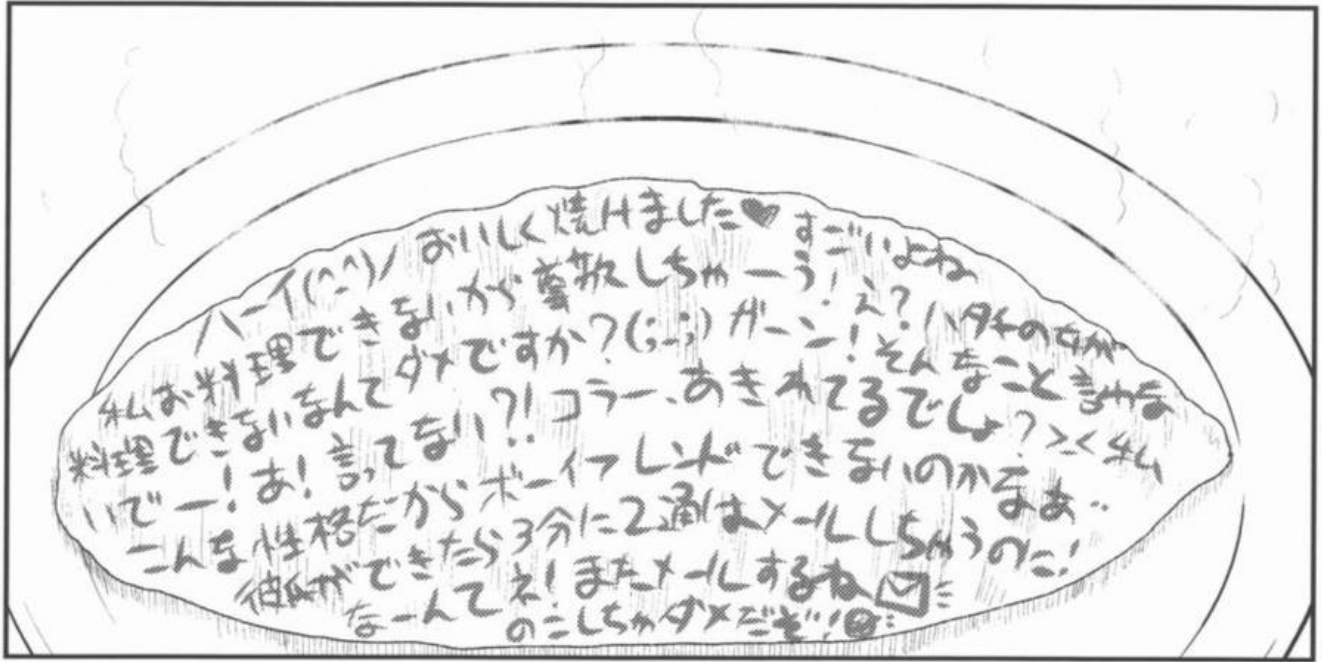 ハーイ(^_^)/ おいしく焼けました♥ すごいよね
私お料理できないから尊敬しちゃーう! え? ハタチの女が
料理できないなんてダメですか?(;_;) ガーン! そんなこと言わな
いでー! あ! 言ってない?! コラー、あきれてるでしょ? ><私
こんな性格だからボーイフレンドできないのかなあ…
彼氏ができたら3分に2通はメールしちゃうのに!
なーんてネ! またメールするね✉
のこしちゃダメだぞ!☻